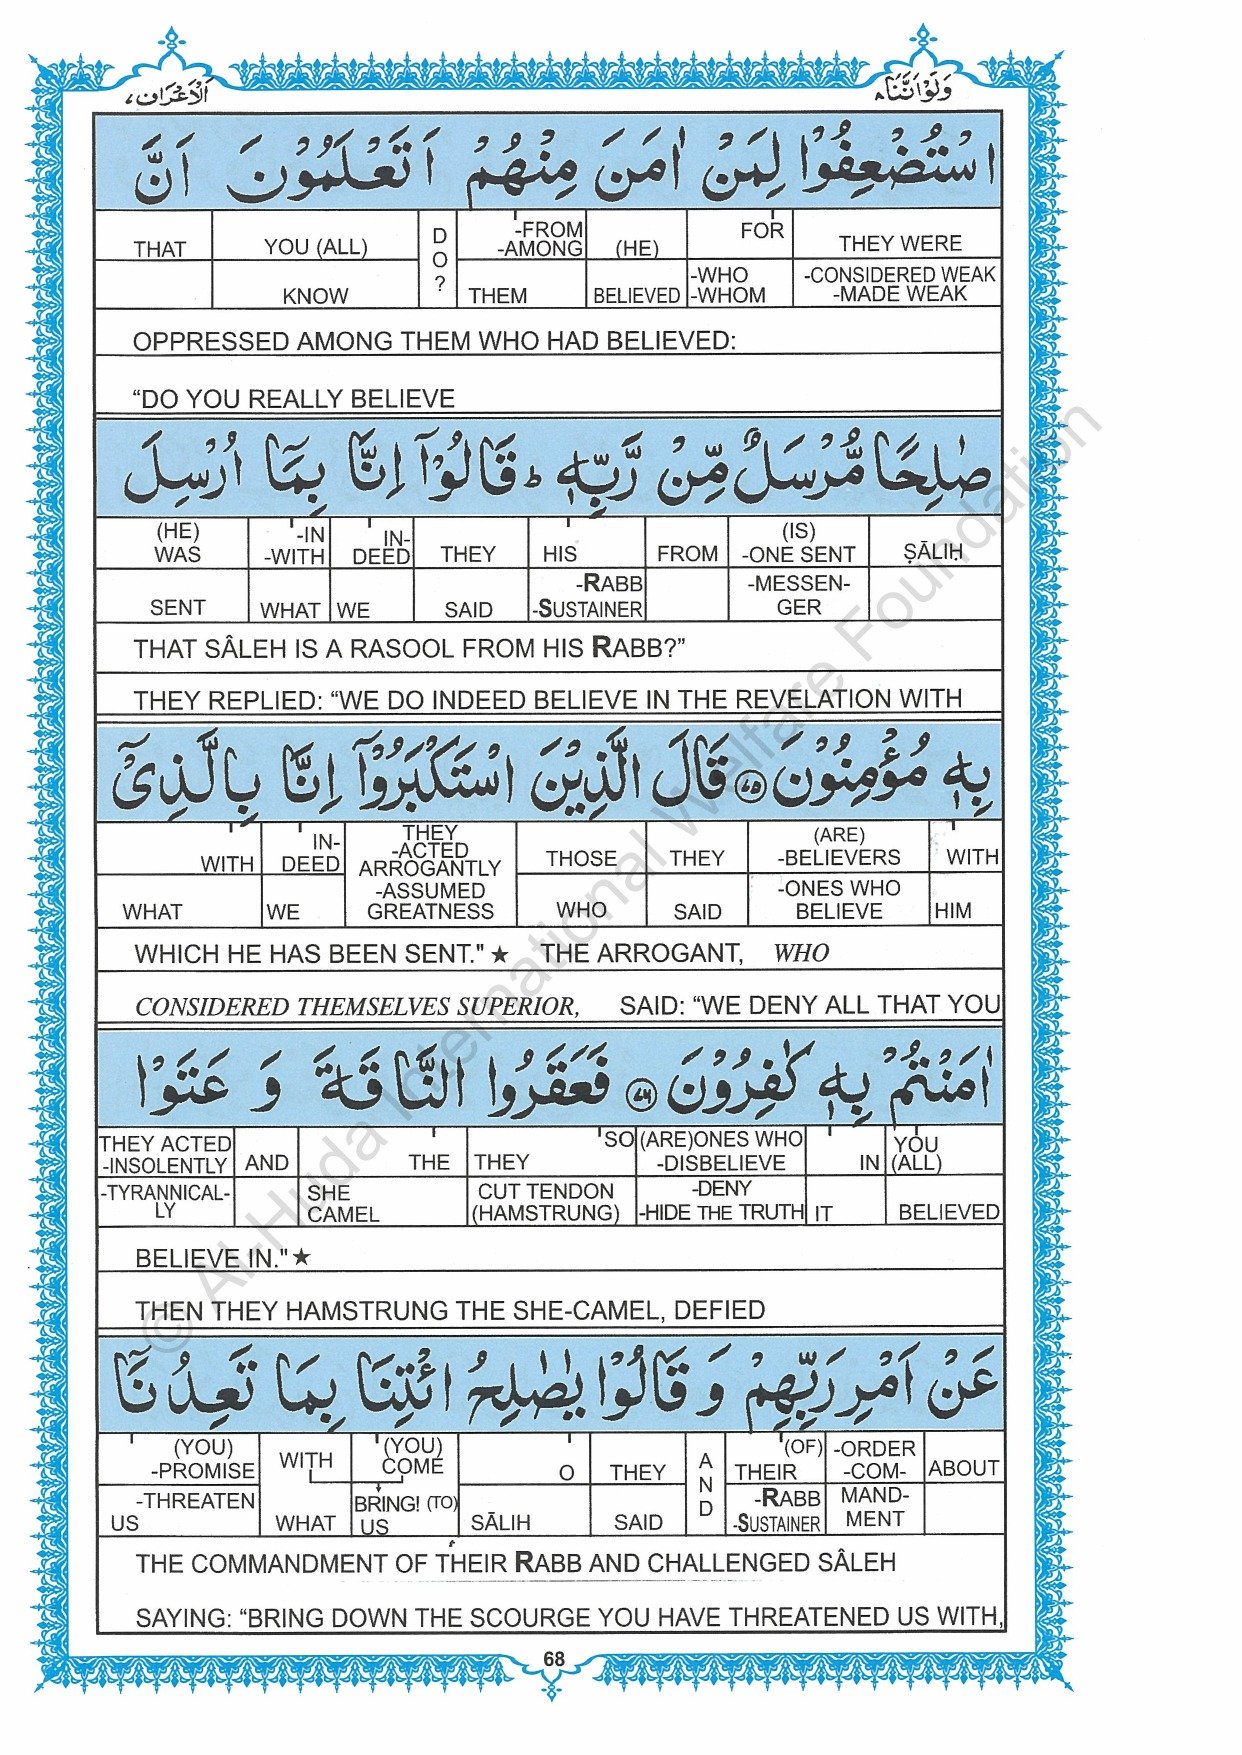 وَلَوْ اَنَّنَا ٨
اَلْاَعْرَاف ٧
اسْتُضْعِفُوْا لِمَنْ اٰمَنَ مِنْهُمْ اَتَعْلَمُوْنَ اَنَّ
THAT YOU (ALL) DO? -FROM -AMONG (HE) FOR THEY WERE
KNOW THEM BELIEVED -WHO -WHOM -CONSIDERED WEAK -MADE WEAK
OPPRESSED AMONG THEM WHO HAD BELIEVED:
“DO YOU REALLY BELIEVE
صٰلِحًا مُّرْسَلٌ مِّنْ رَّبِّهٖ ط قَالُوْٓا اِنَّا بِمَآ اُرْسِلَ
(HE) WAS -IN -WITH IN- DEED THEY HIS FROM (IS) -ONE SENT ṢĀLIḤ
SENT WHAT WE SAID -RABB -SUSTAINER -MESSEN- GER
THAT SÂLEH IS A RASOOL FROM HIS RABB?”
THEY REPLIED: “WE DO INDEED BELIEVE IN THE REVELATION WITH
بِهٖ مُؤْمِنُوْنَ ٧٥ قَالَ الَّذِيْنَ اسْتَكْبَرُوْٓا اِنَّا بِالَّذِيْٓ
WITH IN- DEED THEY -ACTED ARROGANTLY -ASSUMED GREATNESS THOSE THEY (ARE) -BELIEVERS WITH
WHAT WE WHO SAID -ONES WHO BELIEVE HIM
WHICH HE HAS BEEN SENT." ★ THE ARROGANT, WHO
CONSIDERED THEMSELVES SUPERIOR, SAID: “WE DENY ALL THAT YOU
اٰمَنْتُمْ بِهٖ كٰفِرُوْنَ ٧٦ فَعَقَرُوا النَّاقَةَ وَ عَتَوْا
THEY ACTED -INSOLENTLY AND THE THEY SO (ARE)ONES WHO -DISBELIEVE IN YOU (ALL)
-TYRANNICAL- LY SHE CAMEL CUT TENDON (HAMSTRUNG) -DENY -HIDE THE TRUTH IT BELIEVED
BELIEVE IN." ★
THEN THEY HAMSTRUNG THE SHE-CAMEL, DEFIED
عَنْ اَمْرِ رَبِّهِمْ وَ قَالُوْا يٰصٰلِحُ ائْتِنَا بِمَا تَعِدُنَآ
(YOU) -PROMISE WITH (YOU) COME O THEY AND (OF) THEIR -ORDER -COM- ABOUT
-THREATEN US WHAT BRING! (TO) US SĀLIH SAID -RABB -SUSTAINER MAND- MENT
THE COMMANDMENT OF THEIR RABB AND CHALLENGED SÂLEH
SAYING: “BRING DOWN THE SCOURGE YOU HAVE THREATENED US WITH,
68
© Al-Huda International Welfare Foundation